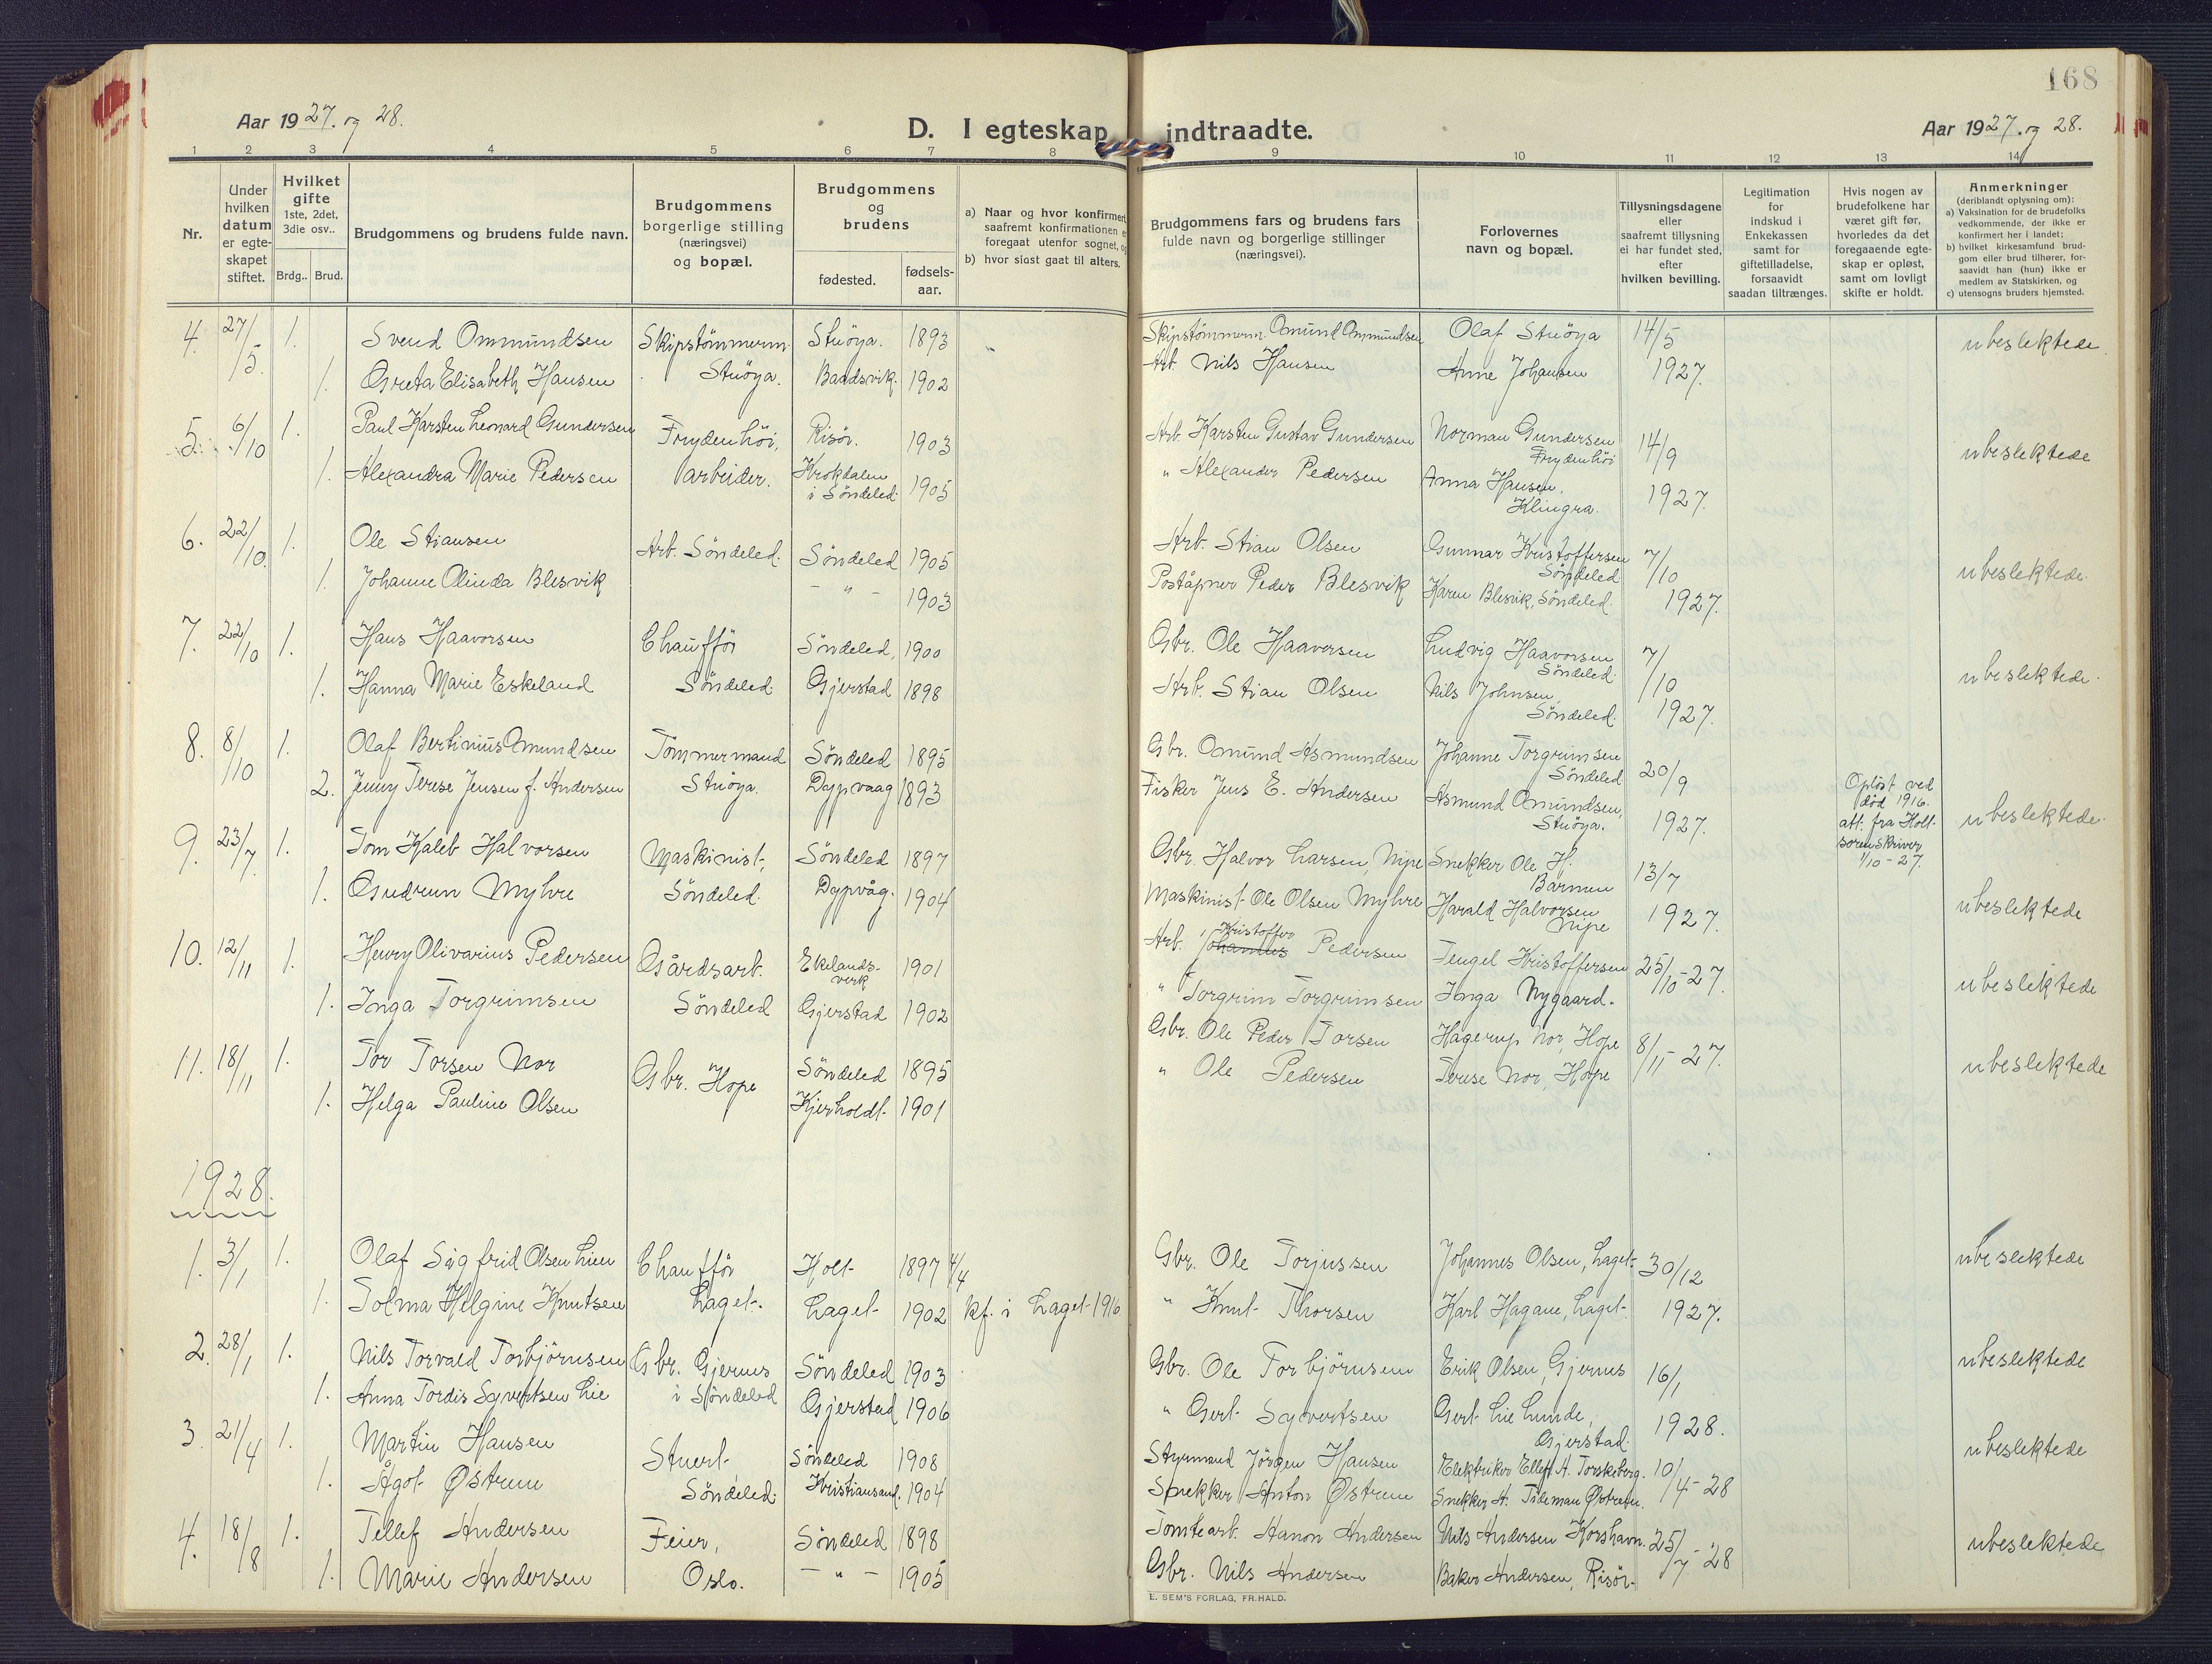 168
Aar 1927. og 28.
D. I egteskap indtraadte.
Aar 1927. og 28.
1 2 3 4 5 6 7 8 9 10 11 12 13 14
Nr.
Under hvilken datum er egteskapet stiftet.
Hvilket gifte
1ste, 2det, 3die osv..
Brdg.. Brud.
Brudgommens og brudens fulde navn.
Brudgommens borgerlige stilling (næringsvei) og bopæl.
Brudgommens og brudens
fødested.
fødselsaar.
a) Naar og hvor konfirmert
saafremt konfirmationen
foregaat utenfor sognet,
b) hvor sidst gaat til alters.
Brudgommens fars og brudens fars
fulde navn og borgerlige stillinger
(næringsvei).
Forlovernes
navn og bopæl.
Tillysningsdagene
eller
saafremt tillysning
ei har fundet sted,
efter
hvilken bevilling.
Legitimation
for
indskud i
Enkekassen
samt for
giftetilladelse,
forsaavidt
saadan tiltrænges.
Hvis nogen av
brudefolkene har
været gift før,
hvorledes da det
foregaaende egte-
skap er opløst,
samt om lovligt
skifte er holdt.
Anmerkninger
(deriblandt oplysning om):
a) Vaksination for de brudefolks
vedkommende, der ikke er
konfirmert her i landet;
b) hvilket kirkesamfund brud-
gom eller brud tilhører, for-
saavidt han (hun) ikke er
medlem av Statskirken, og
c) utensogns bruders hjemsted.
4. 27/5. 1. Svend Ommundsen Skipstömmerm. Stuöya. 1893 Skipstömmerm. Omund Ommundsen Olaf Stuöya 14/5 ubeslektede
1. Greta Elisabeth Hansen Stuöya. Baadsvik. 1902 Arb. Nils Hansen Anne Johansen 1927.
5. 6/10 1. Paul Karsten Leonard Gundersen Frydenhöi, Risör. 1903 Arb. Karsten Gustav Gundersen Norman Gundersen Frydenhöi 14/9 ubeslektede
1. Alexandra Marie Pedersen arbeider. Krokdalen i Söndeled. 1905 " Alexander Pedersen Anna Hansen, Klingra. 1927.
6. 22/10. 1. Ole Stiansen Arb. Söndeled. Söndeled 1905 Arb. Stian Olsen Gunnar Kristoffersen Söndeled 7/10 ubeslektede.
1. Johanne Olinda Blesvik – " – 1903 Poståpner Peder Blesvik Karen Blesvik, Söndeled. 1927.
7. 22/10 1. Hans Haavorsen Chaufför Söndeled, 1900 Gbr. Ole Haavorsen Ludvig Haavorsen Söndeled. 7/10 ubeslektede.
1. Hanna Marie Eskeland Söndeled Gjerstad 1898 Arb. Stian Olsen Nils Johnsen, Söndeled. 1927.
8. 8/10 1. Olaf Bertinius Omundsen Tömmermand Söndeled 1895 Gbr. Omund Asmundsen Johanne Torgrimsen Söndeled 20/9 ubeslektede.
2. Jenny Terese Jensen f. Andersen Stuöya. Dypvaag 1893 Fisker Jens E. Andersen Asmund Omundsen, Stuöya. 1927. Oplöst ved död 1916. att. fra Holt sorenskriver 1/10-27.
9. 23/7. 1. Tom Kaleb Halvorsen Maskinist, Söndeled 1897 Gbr. Halvor Larsen, Nipe Snekker Ole H. Barmen 13/7 ubeslektede
1. Gudrun Myhre Söndeled. Dypvåg. 1904 Maskinist Ole Olsen Myhre Harald Halvorsen Nipe 1927.
10. 12/11 1. Henry Olivarius Pedersen Gårdsarb. Ekelandsverk 1901 Arb. Johannes Kristoffer Pedersen Tengel Kristoffersen 25/10-27. ubeslektede
1. Inga Torgrimsen Söndeled Gjerstad 1902 " Torgrim Torgrimsen Inga Nygaard.
11. 18/11 1. Tor Torsen Nor Gbr. Hope Söndeled 1895 Gbr. Ole Peder Torsen Hagerup Nor, Hope 8/11-27. ubeslektede
1. Helga Pauline Olsen Kjerholdt 1901 " Ole Pedersen Terese Nor, Hope
1928.
1. 3/1 1. Olaf Sigfrid Olsen Lien Chaufför Holt 1897 4/4 Gbr. Ole Torjussen Johannes Olsen, Laget. 30/12 ubeslektede
1. Tolma Helgine Knutsen Laget. Laget 1902 kf. i Laget 1916 " Knut Thorsen Karl Hagane, Laget. 1927.
2. 28/1 1. Nils Torvald Torbjörnsen Gbr. Gjernes Söndeled 1903 Gbr. Ole Torbjörnsen Erik Olsen, Gjernes 16/1 ubeslektede
1. Anna Tordis Syvertsen Lie i Söndeled Gjerstad 1906 " Gert Syvertsen Gert Lie Lunde, Gjerstad. 1928.
3. 21/4 1. Martin Hansen Stuert Söndeled 1908 Styrmand Jörgen Hansen Elektriker Ellef A. Torskeberg. 10/4-28 ubeslektede
1. Ågot Østrem Söndeled. Kristiansand. 1904 Snekker Anton Østrem Snekker A. Tideman Østrem.
4. 18/8 1. Tellef Andersen Feier, Söndeled 1898 Tomtearb. Hanon Andersen Nils Andersen Korshavn. 25/7-28 ubeslektede
1. Marie Andersen Oslo. – " – 1905 Gbr. Nils Andersen Baker Andersen, Risör.
E. SEM'S FORLAG, FR.HALD.